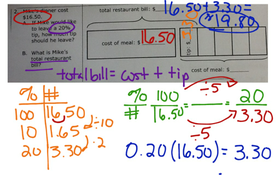 2. Mike's dinner cost
$16.50.
total restaurant bill: $
16.50+3.30=
19.80
to leave a 20%
tip, how much tip
should he leave?
cost of meal: $16.50
B. What is Mike's
total restaurant
bill?
cost of meal: $
total bill = cost + tip
% | #
100 | 16.50
10 | 1.65 ÷10
20 | 3.30 ·2
% 100 = ÷5 = 20
# 16.50 ÷5 3.30
0.20(16.50) = 3.30